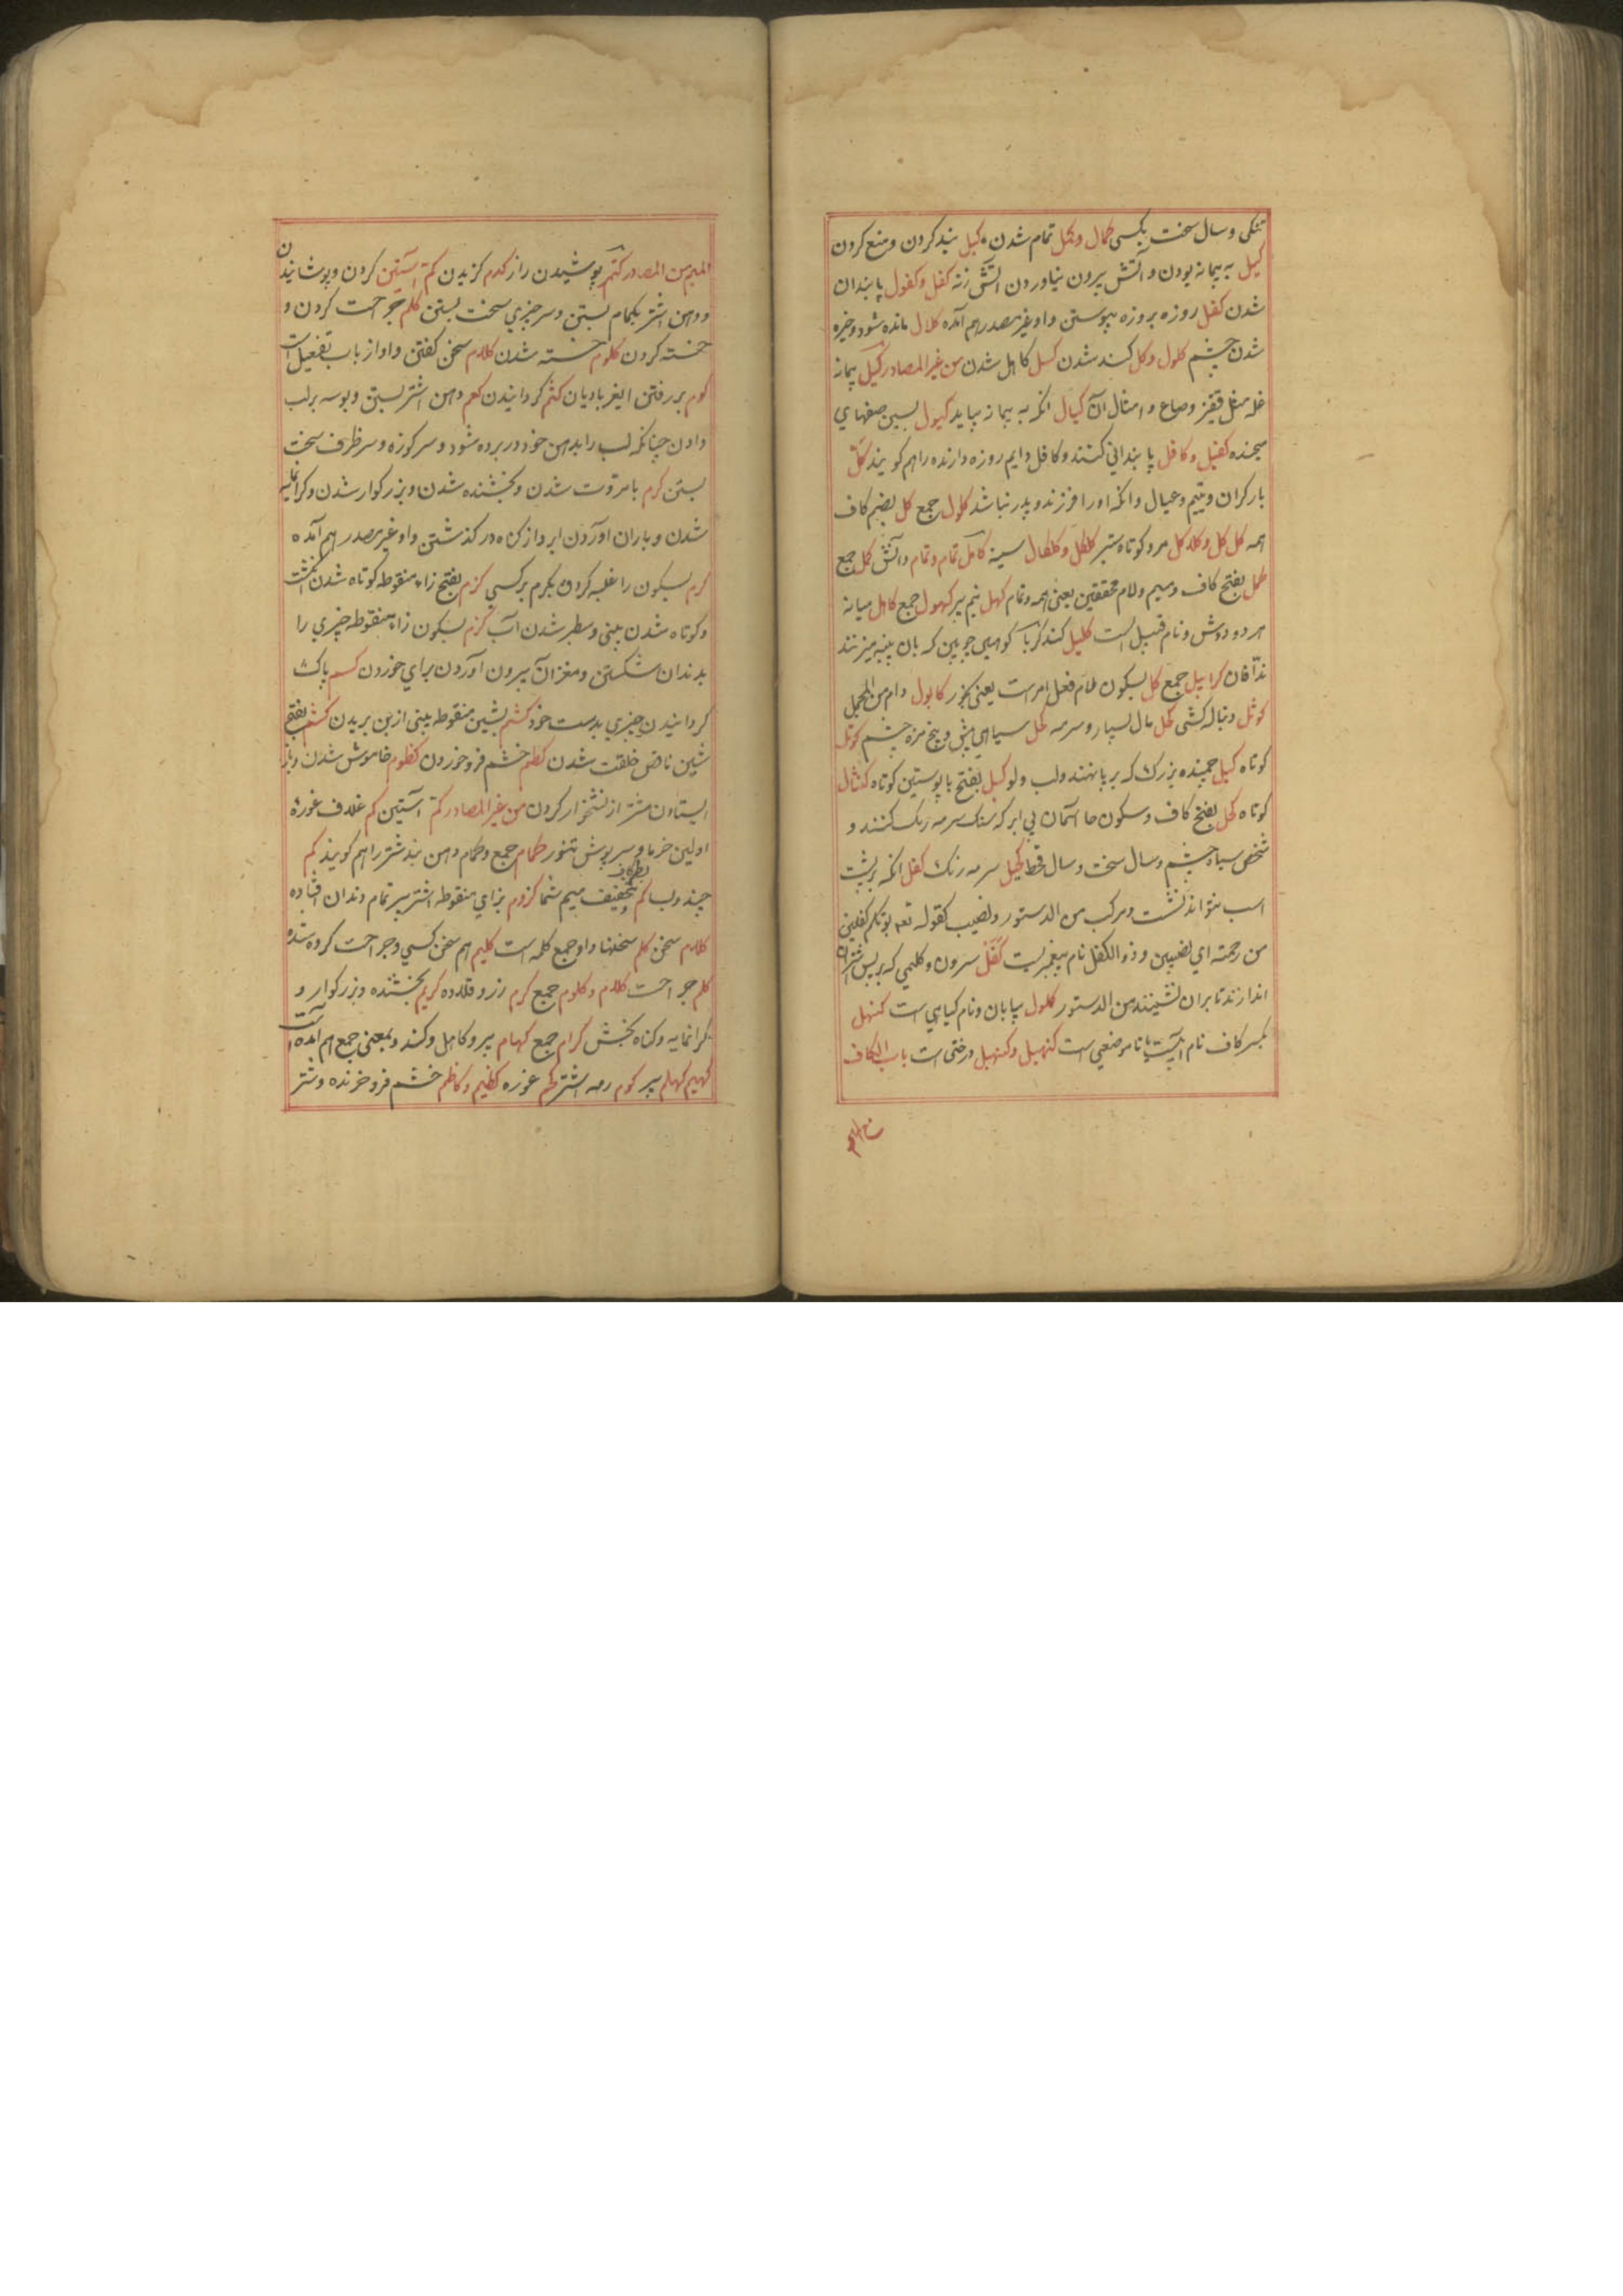 تنکی و سال سخت بکسی کمال و کمل تمام شدن کبل بند کردن و منع کردن
کیل به پیمانه پودن و آتش بیرون نیاوردن آتش زنه کفل و کفول پابندان
شدن کفل روزه بروزه پیوستن و او غیر مصدر هم آمده کلال مانده شود و خیره
شدن چشم کلول و کل کند شدن کسل کاهل شدن من غیر المصادر کیل پیمانه
غله مثل قفیز و صاع و امثال آن کیال آنکه به پیمانه پیماید کیول پسین صفهای
کفیل و کافل پابندانی کننده و کافل دایم روزه دارنده را هم کویند کل
بار کران و یتیم و عیال و آنکه او را فرزند و پدر نباشد کلول جمع کل بضم کاف
همه کل کل و کلاکل مرد کوتاه ستبر کلکل و کلکال سینه کامل تمام و تمام دانش کمل جمع
کمل بفتح کاف و میم و لام مخففین یعنی همه و تمام کهل نیم پیر کهول جمع کاهل میانه
هر دو دوش و نام قبیل است کلیل کند کربال کوهی چوبین که بان پنبه میزنند
ندافان کرابیل جمع کل بسکون لام فعل امرست یعنی بخور کابول دام من المجمل
کوثل دنباله کشی کحل مال بسیار و سرمه کحل سیاهی بیخ مژه چشم کوتل
کوتاه کبل چمبنده بزرک که بر پا نهند ولب دلو کبل بفتح با پوستین کوتاه کنثال
کوتاه کحل بفتح کاف و سکون حا آسمان بی ابر که سنک سرمه رنک کنند و
شخص سیاه چشم و سال سخت و سال قحط کحیل سرمه رنک کفل آنکه بر پشت
اسب نتواند نشت و مرکب من الدستور و نصیب کقوله تعه یوتکم کفلین
من رحمته ای نصیبین و ذو الکفل نام پیغمبریست کفل سرون و کلیمی که بر پس اشتران
اندازند تا بران نشینند من الدستور کلول بیابان و نام کیاهی است کنهل
بکسر کاف نام آبیست یا نام موضعی است کنهبل و کنهبل درختی است باب الکاف
مع المیم
المیم من المصادر کتم پوشیدن راز کدم کزیدن کم آستین کردن و پوشانیدن
و دهن اشتر بکمام بستن و سر چیزی سخت بستن کلم جراحت کردن و
خسته کردن کلوم خسته شدن کلام سخن کفتن و او از باب تفعیل است
کوم بر رفتن ایغر بادیان کثم کردانیدن کعم دهن اشتر بستن و بوسه بر لب
دادن چنانکه لب را بدهن خود در برده شود و سر کوزه و سر ظرف سخت
بستن کرم با مروت شدن و بخشنده شدن و بزرکوار شدن و کرانمایه
شدن و باران آوردن ابر و از کناه در کذشتن و او غیر مصدر هم آمده
کرم بسکون را غلبه کردن بکرم بر کسی کزم بفتح زاء منقوطه کوتاه شدن انکشت
و کوتاه شدن بینی و سطبر شدن لب کزم بسکون زاء منقوطه چیزی را
بدندان شکستن و مغز آن بیرون آوردن برای خوردن کسم پاک
کردانیدن چیزی بدست خود کشم بشین منقوطه بینی از بن بریدن کشم بفتح
شین ناقص خلقت شدن کظم خشم فرو خوردن کظوم خاموش شدن و باز
ایستادن شتر از نشخوار کردن من غیر المصادر کم آستین کم غلاف غوره
اولین خرما و سرپوش تنور کمام جمع و کمام دهن بند شتر را هم کویند کم
چند و بسا کم بضم کاف و تخفیف میم شما کزوم بزای منقوطه اشتر پیر تمام دندان افتاده
کلام سخن کلم سخنها و او جمع کلمه است کلیم هم سخن کسی و جراحت کرده شده
کلم جراحت کلام و کلوم جمع کرم رز و قلاده کریم بخشنده و بزرکوار و
کرانمایه و کناه بخش کرام جمع کهام پیر و کاهل و کند و بمعنی جمع هم آمده است
کهیم کهام پیر کوم رمه اشتر کحم غوره کظیم و کاظم خشم فرو خورنده و شتر